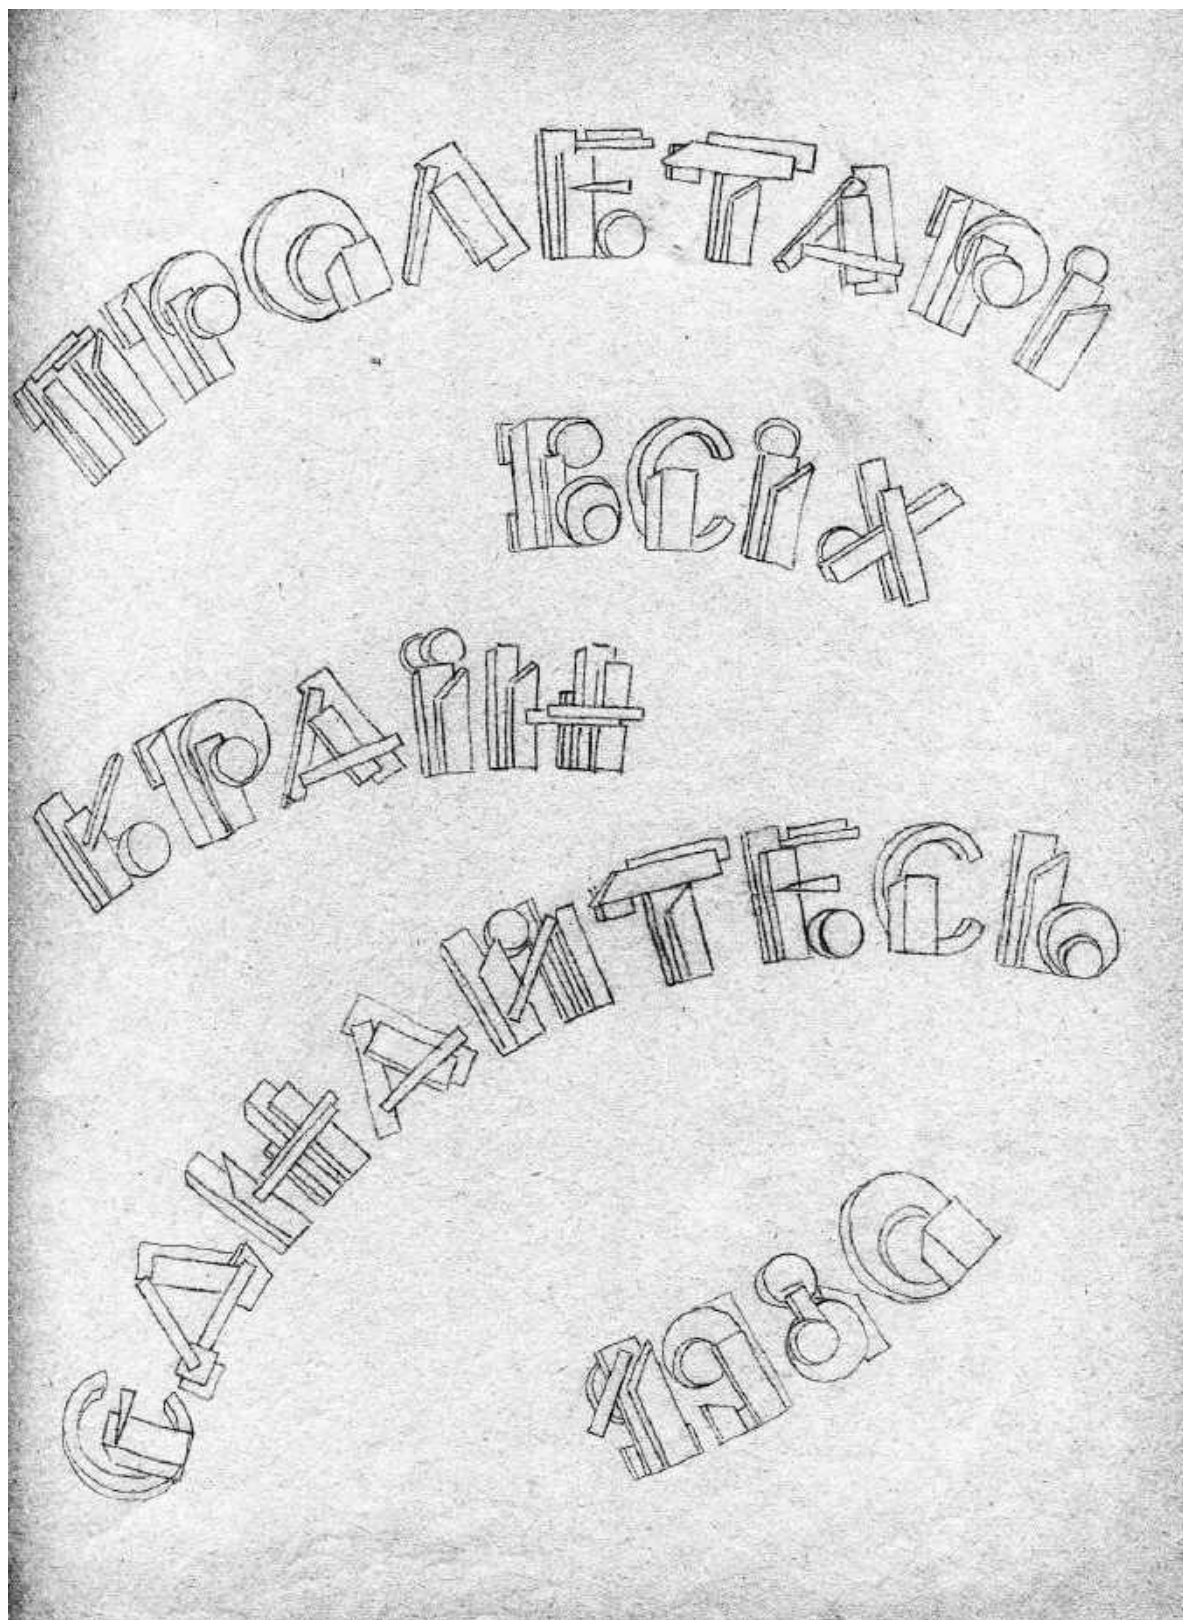 ПРОЛЕТАРІ
ВСІХ
КРАЇН
ЄДНАЙТЕСЬ
1930